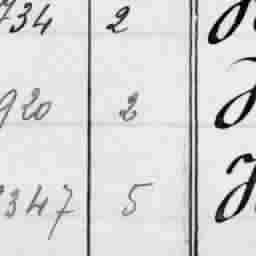 734 2
920 2
3347 5